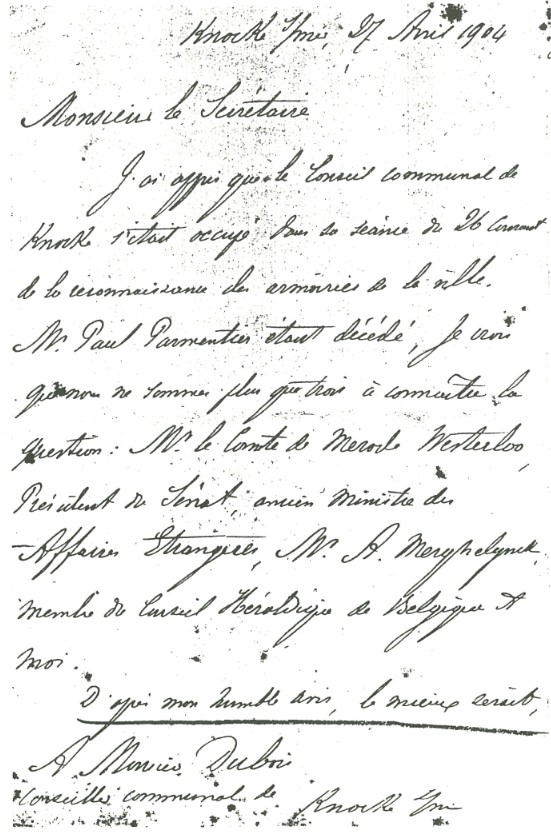 Knocke s/mer, 27 Avril 1904
Monsieur le Secrétaire
J'ai appris que le Conseil communal de
Knocke s'était occupé dans sa séance du 26 Courant
de la reconnaissance des armoiries de la ville.
Mr. Paul Parmentier étant décédé, je crois
que nous ne sommes plus que trois à connaître la
question: Mr. le Comte de Merode Westerloo,
Président du Sénat, ancien Ministre des
Affaires Etrangères, Mr. A. Merghelynck,
membre du Conseil Héraldique de Belgique et
moi.
D'après mon humble avis, le mieux serait,
A Monsieur Dubois
Conseiller communal de Knocke s/m